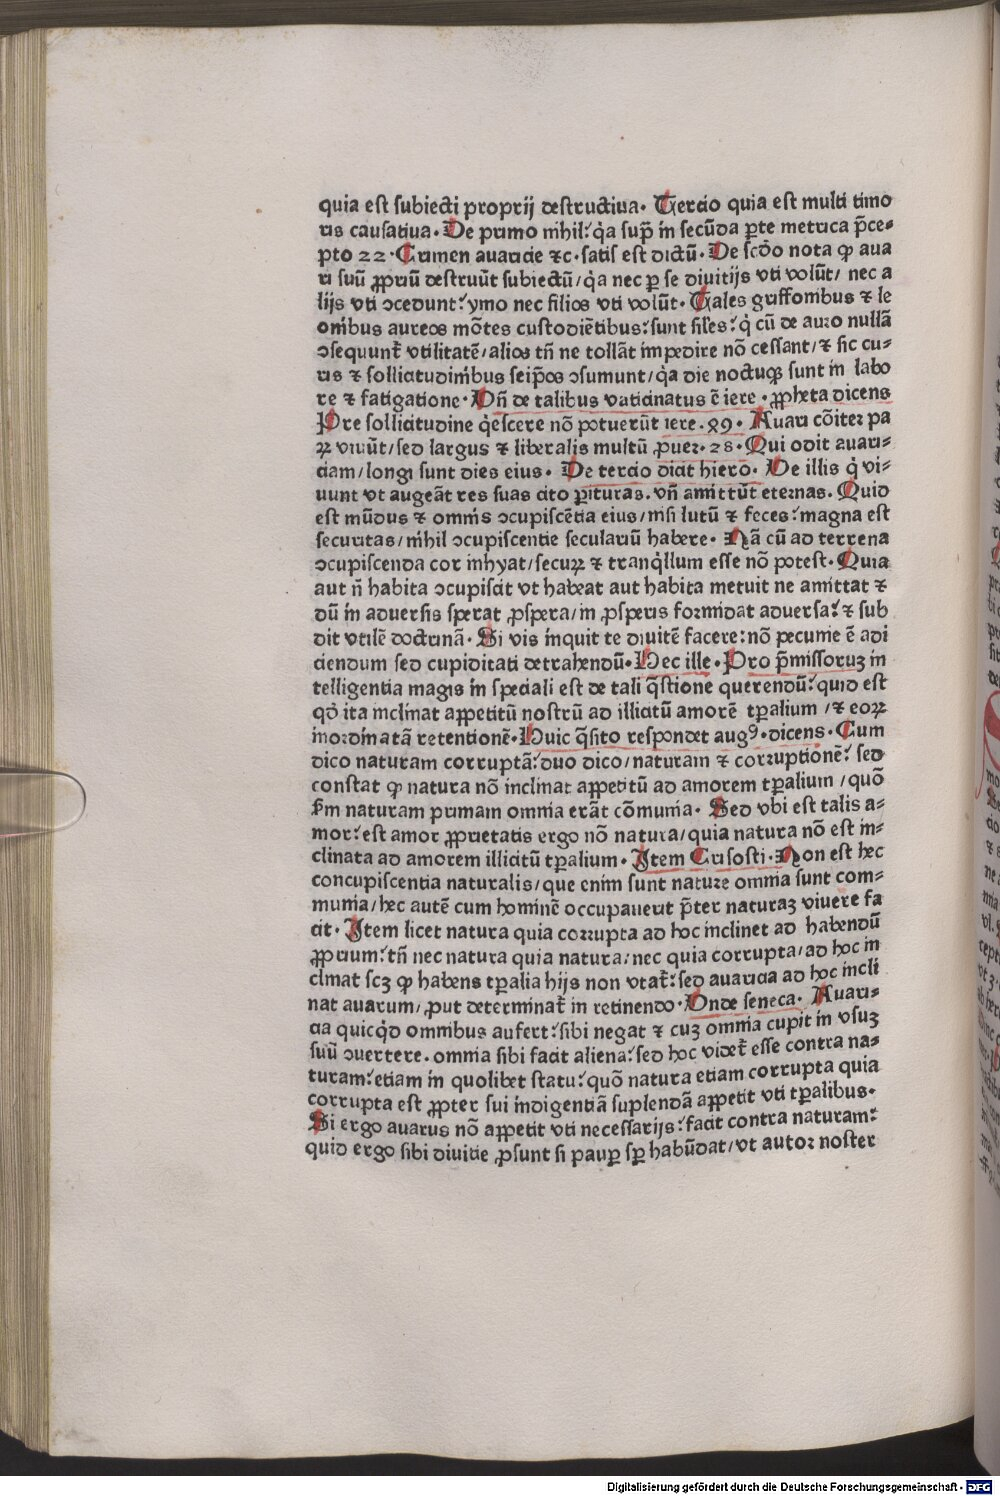 quia est subiecti proprij destructiua· Tercio quia est multi timo
ris causatiua· De primo nihil: q̇a sup̄ in secūda p̱te metrica p̄ce⸗
pto 22· Crimen auaricie ⁊c· satis est dictū· De scďo nota ꝙ aua
ri suū ꝓpriū destruūt subiectū/q̇a nec ꝑ se diuitijs vti volūt/ nec a
lijs vti ↄcedunt: ymo nec filios vti volūt· Tales griffonibus ⁊ le
onibus aureos mōtes custodiētibus: sunt siĺes: q̇ cū de auro nullā
ↄsequunt᷑ vtilitatē/alios tn̄ ne tollāt impedire nō cessant/⁊ sic cu⸗
ris ⁊ sollicitudinibus seip̄os ↄsumunt/q̇a die noctuqꝫ sunt in labo
re ⁊ fatigatione· Vn̄ de talibus vaticinatus ē iere· ꝓpheta dicens
Pre sollicitudine q̇escere nō potuerūt iere·89· Auari cōiter pa
ꝝ viuūt/sed largus ⁊ liberalis multū ꝓuer·28· Qui odit auari⸗
ciam/longi sunt dies eius· De tercio dicit hiero· De illis q̇ vi⸗
uunt vt augeāt res suas cito ꝑituras· vn̄ amittūt eternas· Quid
est mūdus ⁊ omnis ↄcupiscētia eius/nisi lutū ⁊ feces: magna est
securitas/nihil ↄcupiscentie seculariū habere· Nā cū ad terrena
ↄcupiscenda cor inhyat/secuꝝ ⁊ tranq̇llum esse nō potest· Quia
aut n̄ habita ↄcupiscit vt habeat aut habita metuit ne amittat ⁊
dū in aduersis sperat ꝓspera/in ꝓsperis formidat aduersa: ⁊ sub
dit vtilē doctrinā· Si vis inquit te diuitē facere: nō pecunie ē adi
ciendum sed cupiditati detrahendū· Hec ille· Pro p̄missoruꝫ in
telligentia magis in speciali est de tali q̄stione querendū: quid est
qďˀ ita inclinat appetitū nostrū ad illicitū amorē tp̱alium/⁊ eoꝝ
inordinatā retentionē· Huic q̄sito respondet augꝰ· dicens· Cum
dico naturam corruptā: duo dico/naturam ⁊ corruptionē: sed
constat ꝙ natura nō inclinat appetitū ad amorem tp̱alium/quō
ẜm naturam primam omnia erāt cōmunia· Sed vbi est talis a⸗
mor: est amor ꝓprietatis ergo nō natura/quia natura nō est in⸗
clinata ad amorem illicitū tp̱alium· Item Crisosti· Non est hec
concupiscentia naturalis/que enim sunt nature omnia sunt com⸗
munia/hec autē cum hominē occupauerit p̄ter naturaꝫ viuere fa
cit· Item licet natura quia corrupta ad hoc inclinet ad habendū
ꝓprium: tn̄ nec natura quia natura/nec quia corrupta/ad hoc in
clinat scꝫ ꝙ habens tp̱alia hijs non vtat᷑: sed auaricia ad hoc incli
nat auarum/ꝓut determinat᷑ in retinendo· Vnde seneca· Auari⸗
cia quicq̇d omnibus aufert: sibi negat ⁊ cuꝫ omnia cupit in vsuꝫ
suū ↄuertere· omnia sibi facit aliena: sed hoc videt᷑ esse contra na⸗
turam: etiam in quolibet statu: quō natura etiam corrupta quia
corrupta est ꝓpter sui indigentiā suplendā appetit vti tp̱alibus·
Si ergo auarus nō appetit vti necessarijs: facit contra naturam:
quid ergo sibi diuitie ꝓsunt si pauꝑ sꝑ habūdat/vt autor noster
Digitalisierung gefördert durch die Deutsche Forschungsgemeinschaft · DFG